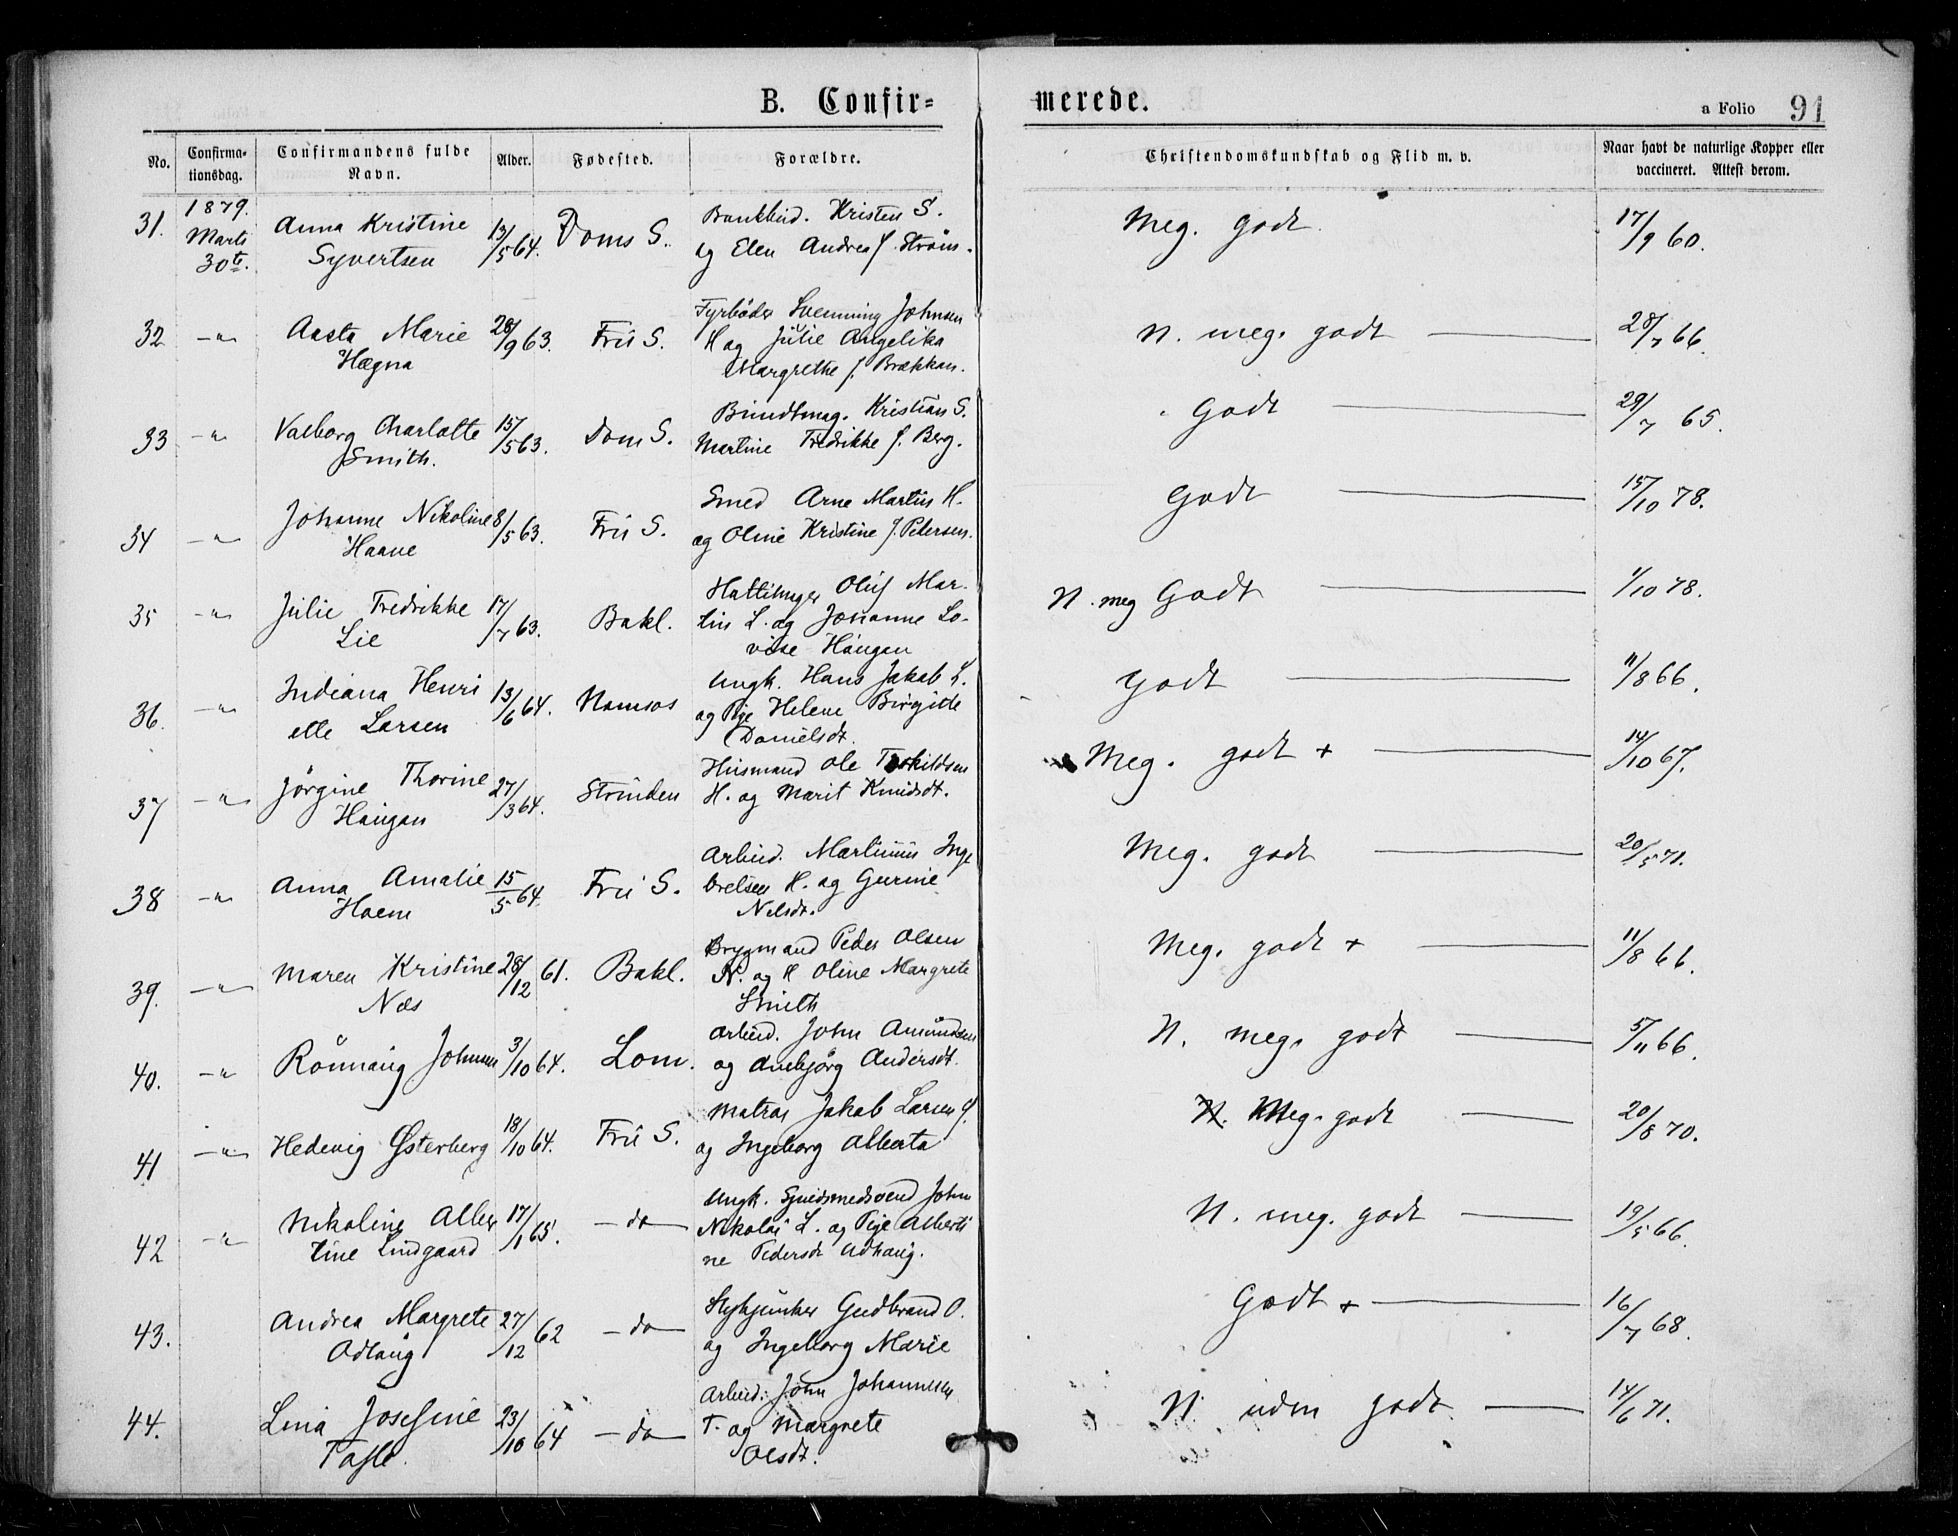 B. Confir=
merede.
a Folio 91
No. Confirma-
tionsdag. Confirmandens fulde
Navn. Alder. Fødested. Forældre. Christendomskundskab og Flid m. v. Naar havt de naturlige Kopper eller
vaccineret. Attest derom.
31. 1879.
Marts
30te.
Anna Kristine
Syvertsen
13/5 64.
Doms S.
Bankbud. Kristen S.
og Elen Andrea f. Strøm.
Meg. godt.
17/9 60.
32 -"-
Aasta Marie
Hægna
28/9 63.
Frü S.
Fyrbøder Svenning Johnsen
H og Julie Angelika
Margrethe f. Brækkan.
N. meg. godt
28/7 66.
33 -"-
Valborg Charlotte
Smith.
15/5 63.
Dom S.
Bundtmag. Kristian S.
Martine Fredrikke f. Berg.
Godt
29/7 65.
34 -"-
Johanne Nikoline
Haave
8/5 63.
Frü S.
Smed Arne Martin H.
og Oline Kristine f. Petersen.
Godt
15/10 78.
35 -"-
Julie Fredrikke
Lie
17/7 63.
Bakl.
Hattemager Oluf Mar-
tin L. og Johanne Lo-
vise Haugan
N. meg Godt
1/10 78.
36. -"-
Indiana Henri
ette Larsen
13/6 64.
Namsos
Ungk. Hans Jakob L.
og Pige Helene Birgitte
Danielsdt.
Godt
11/8 66.
37 -"-
Jørgine Thorine
Haugan
27/3 64.
Strinden
Husmand Ole Torkildsen
H. og Marit Knudsdt.
Meg. godt +
14/10 67.
38 -"-
Anna Amalie
Hoem
15/5 64.
Frü S.
Arbeid. Martinus Inge
bretsen H. og Gurine
Nilsdt.
Meg. godt
20/5 71.
39. -"-
Maren Kristine
Næs
28/12 61.
Bakl.
Brygmand Peder Olsen
N. og H Oline Margrete
Smith
Meg. godt +
11/8 66.
40. -"-
Rönnaug Johnsen
3/10 64.
Lom.
Arbeid. John Amundsen
og Anebjørg Andersdt.
N. meg. godt
5/11 66.
41 -"-
Hedevig Østerberg
18/10 64.
Frü S.
Matros Jakob Larsen Ø.
og Ingeborg Alberta
N. Meg. godt
20/8 70.
42 -"-
Nikoline Alber
tine Lindgaard
17/1 65.
- do -
Ungk. Smedsvend John
Nikolai L. og Pige Alberti
ne Pedersdt Udhaug.
N. meg. godt
19/5 66.
43.
Andrea Margrete
Odlaug
27/12 62
- do -
Stykjunker Gudbrand O.
og Ingeborg Marie
Godt +
16/7 68.
44.
Lina Josefine
Tasle.
23/10 64
- do -
Arbeid. John Johannesen
T. og Margrete
Olsdt.
N. uden godt
14/6 71.